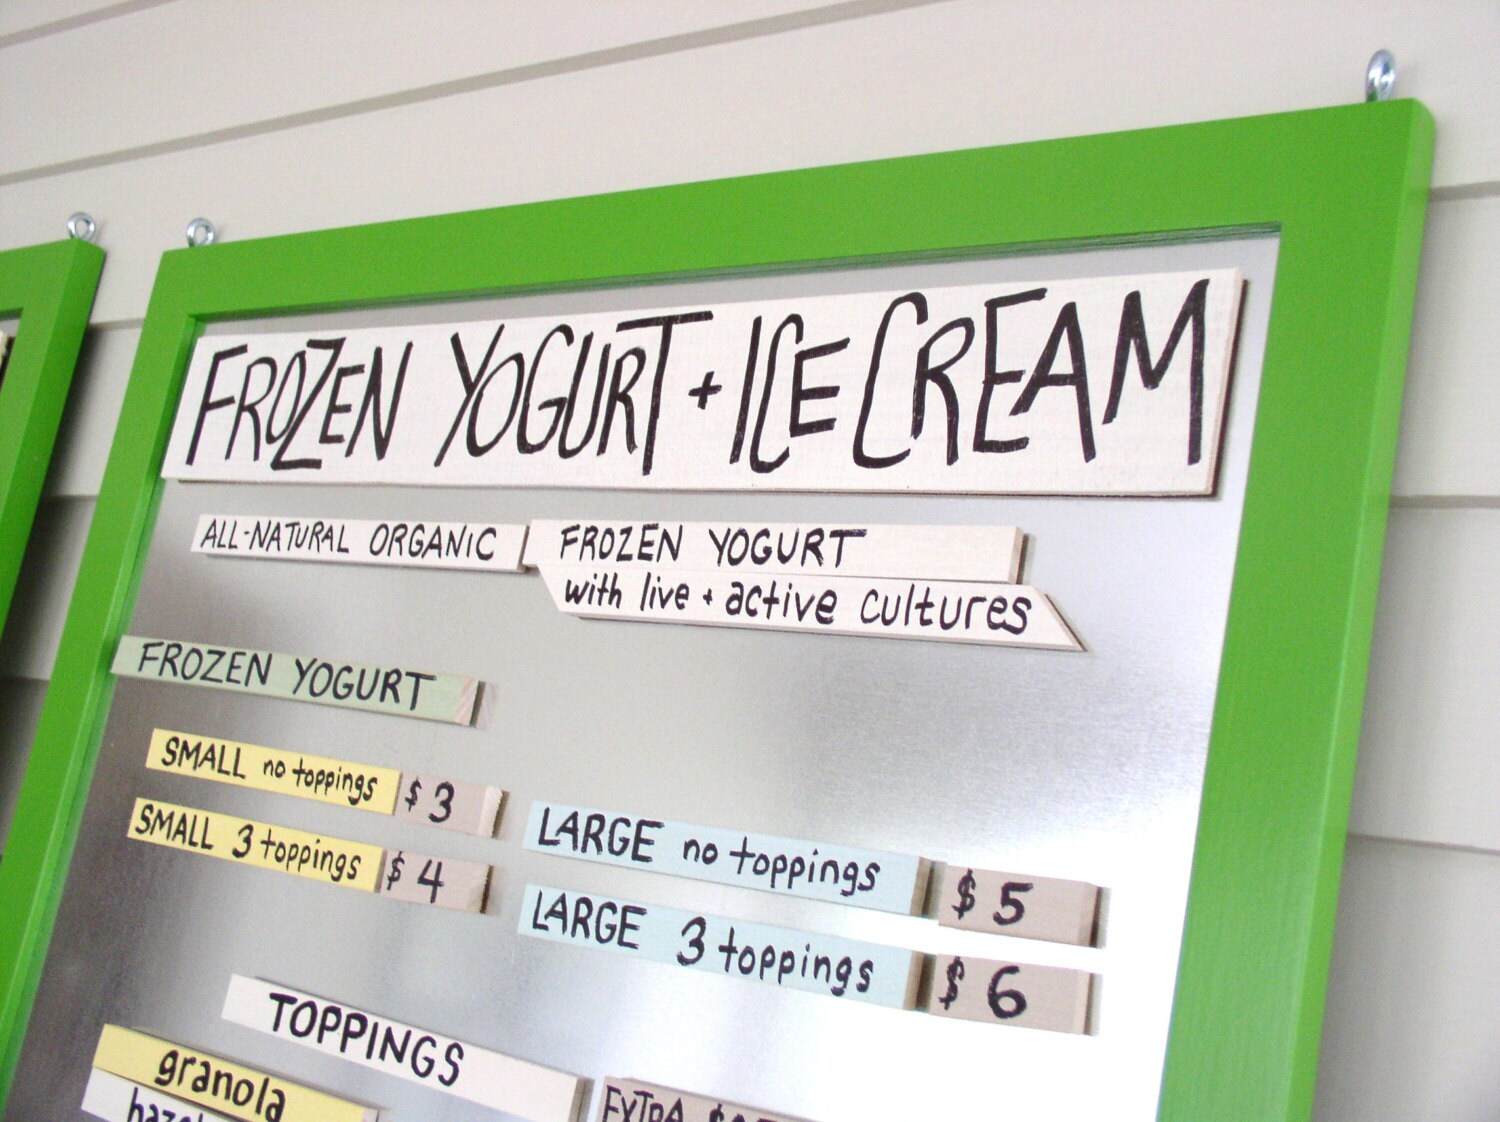 FROZEN YOGURT + ICE CREAM
ALL-NATURAL ORGANIC FROZEN YOGURT
with live + active cultures
FROZEN YOGURT
SMALL no toppings $3
SMALL 3 toppings $4
LARGE no toppings $5
LARGE 3 toppings $6
TOPPINGS
granola
EXTRA